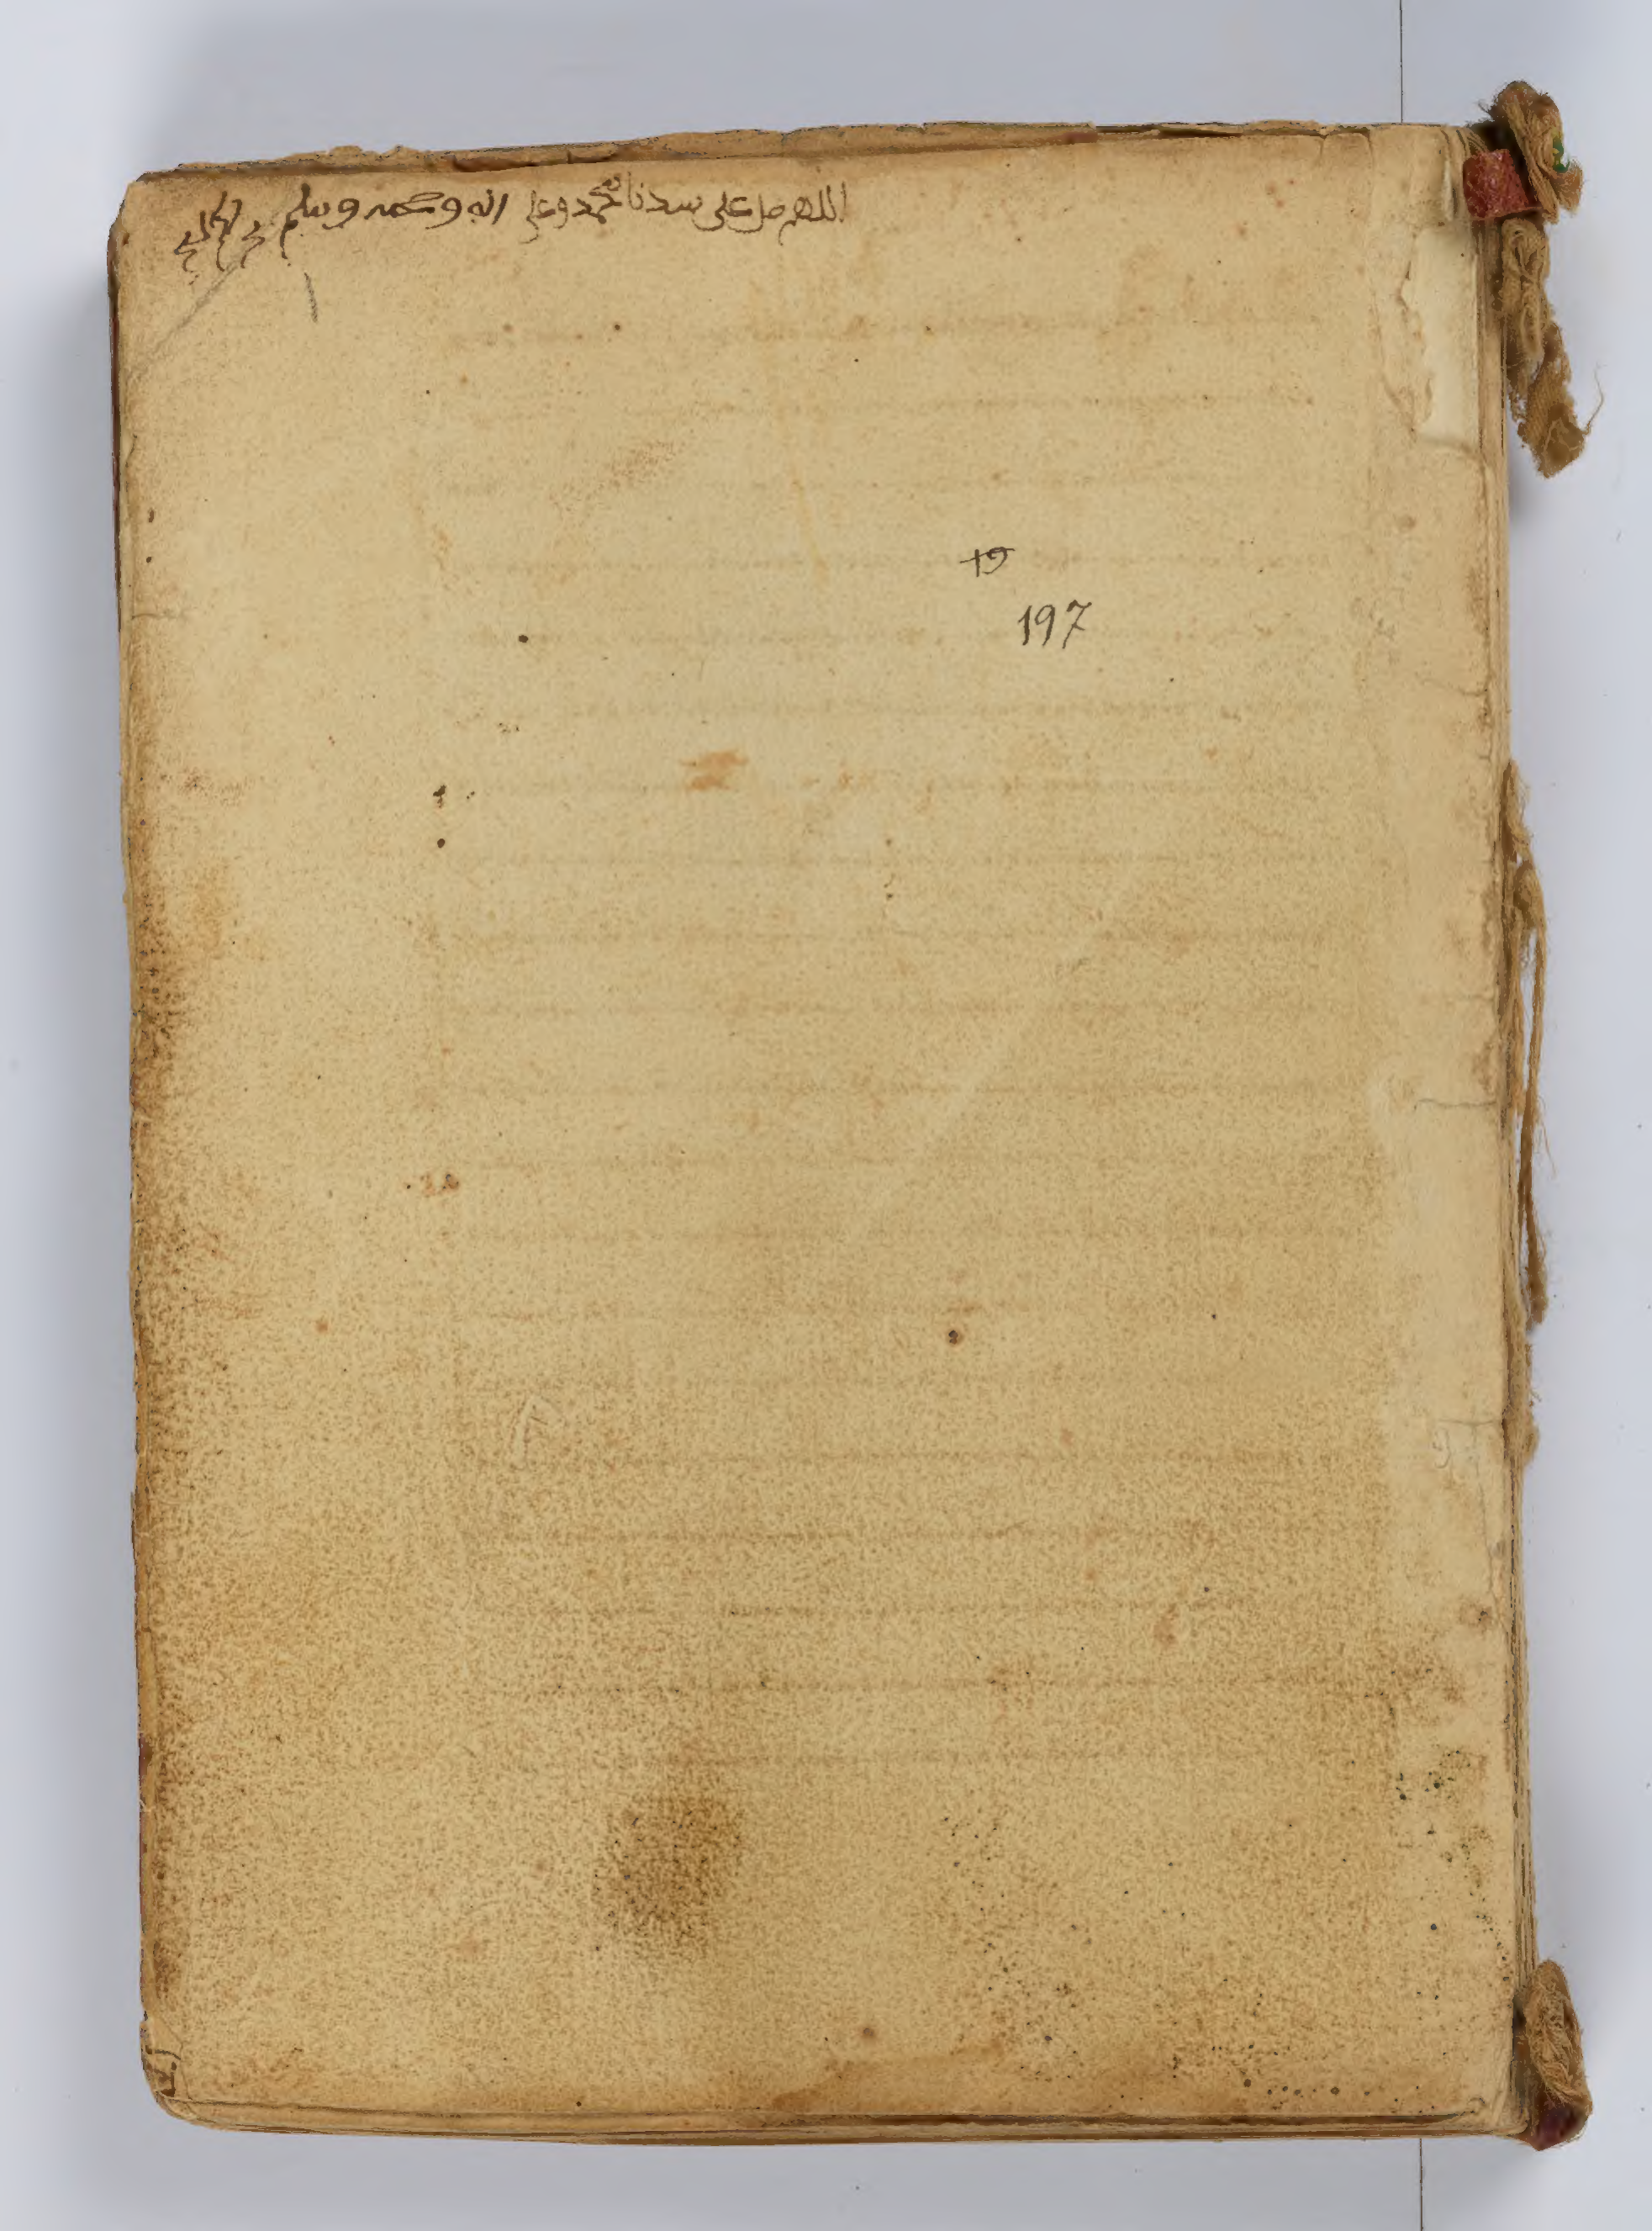 اللهم صل على سيدنا محمد وعلى اله وصحبه وسلم
19
197